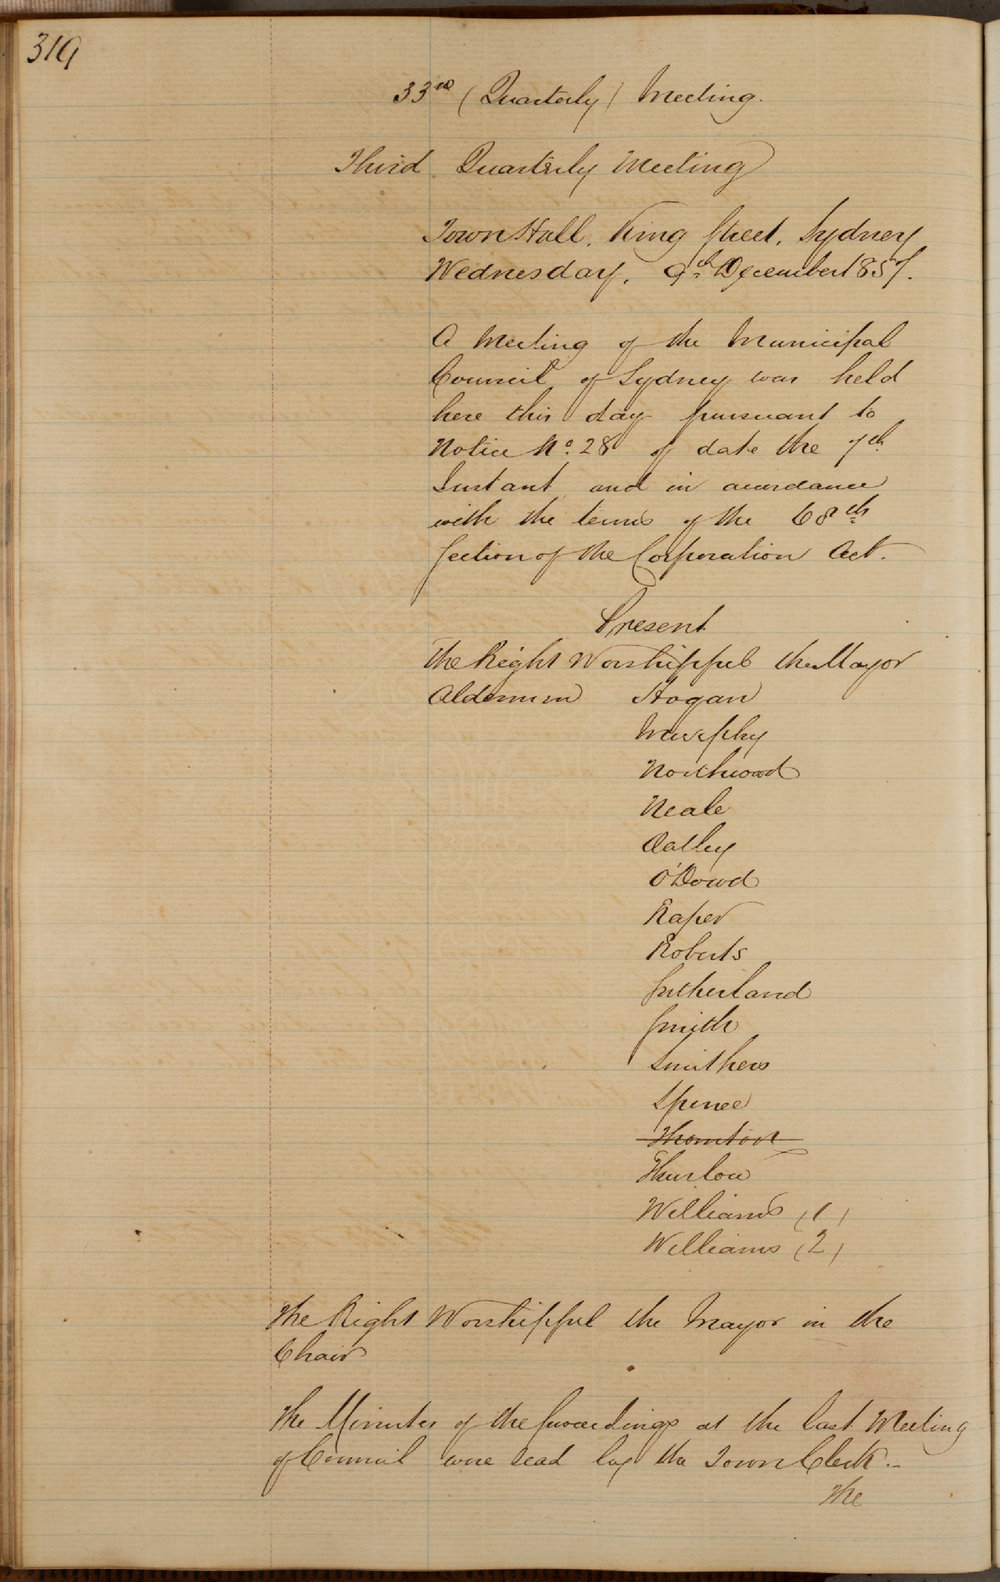 319
33rd (Quarterly) Meeting.
Third Quarterly Meeting
Town Hall, King Street, Sydney
Wednesday, 9th December 1857.
A Meeting of the Municipal
Council of Sydney was held
here this day pursuant to
Notice No. 28 of date the 7th
Instant and in accordance
with the terms of the 68th
Section of the Corporation Act.
Present
The Right Worshipful the Mayor
Aldermen Hogan
Murphy
Northwood
Neale
Oatley
O'Dowd
Raper
Roberts
Sutherland
Smith
Smithers
Spence
Thornton
Thurlow
Williams (1)
Williams (2)
The Right Worshipful the Mayor in the
Chair
The Minutes of the proceedings at the last Meeting
of Council were read by the Town Clerk.-
The